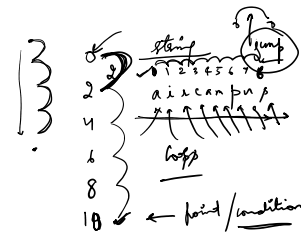 string
jump
0 1 2 3 4 5 6 7 8
0
2
2
a i r c a m p u s
4
6
loop
8
10 ← point / condition